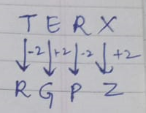 T E R X
↓-2 ↓+2 ↓-2 ↓+2
R G P Z